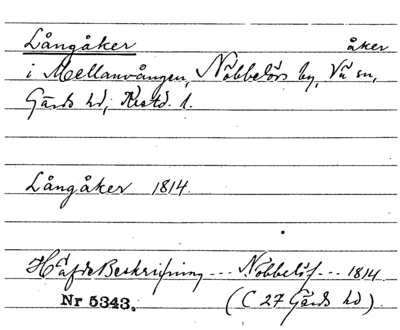 Långåker åker
i Mellanvången, Nöbbelövs by, Vä sn,
Gärds hd, Kristd. l.
Långåker 1814.
HäfdeBeskrifning --- Nöbbelöf --- 1814
Nr 5343. (C 27 Gärds hd).